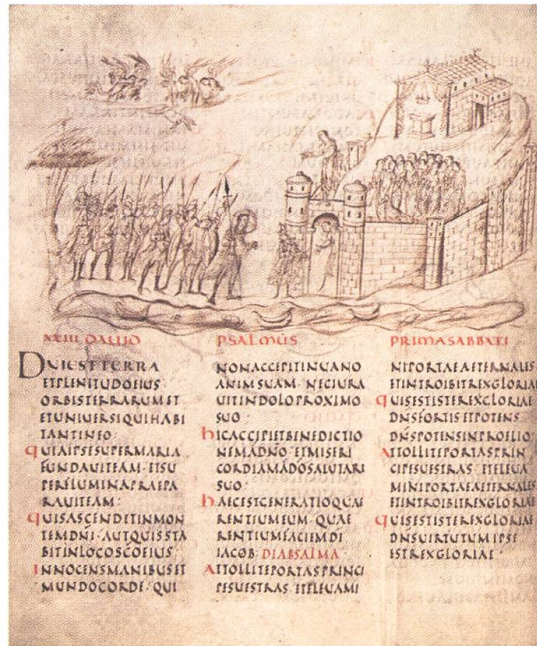 XXIII DAUID
PSALMUS
PRIMA SABBATI
DNI EST TERRA
ET PLENITUDO EIUS
ORBIS TERRARUM ET
ET UNIUERSI QUI HABI
TANT IN EO·
QUIA IPSE SUPER MARIA
FUNDAUIT EAM· ET SU
PER FLUMINA PRAEPA
RAUIT EAM·
QUIS ASCENDET IN MON
TEM DNI· AUT QUIS STA
BIT IN LOCO SCO EIUS
INNOCENS MANIBUS ET
MUNDO CORDE· QUI
NON ACCEPIT IN UANO
ANIM SUAM· NEC IURA
UIT IN DOLO PROXIMO
SUO·
HIC ACCIPIET BENEDICTIO
NEM A DNO· ET MISERI
CORDIAM A DO SALUTARI
SUO·
HAEC EST GENERATIO QUAE
RENTIUM EUM· QUAE
RENTIUM FACIEM DI
IACOB· DIABSALMA
ATTOLLITE PORTAS PRINCI
PES UESTRAS· ET ELEUAMI
NI PORTAE AETERNALES
ET INTROIBIT REX GLORIAE
QUIS EST ISTE REX GLORIAE
DNS FORTIS ET POTENS
DNS POTENS IN PROELIO·
ATTOLLITE PORTAS PRIN
CIPES UESTRAS· ET ELEUA
MINI PORTAE AETERNALES
ET INTROIBIT REX GLORIAE
QUIS EST ISTE REX GLORIAE
DNS UIRTUTUM IPSE
EST REX GLORIAE·